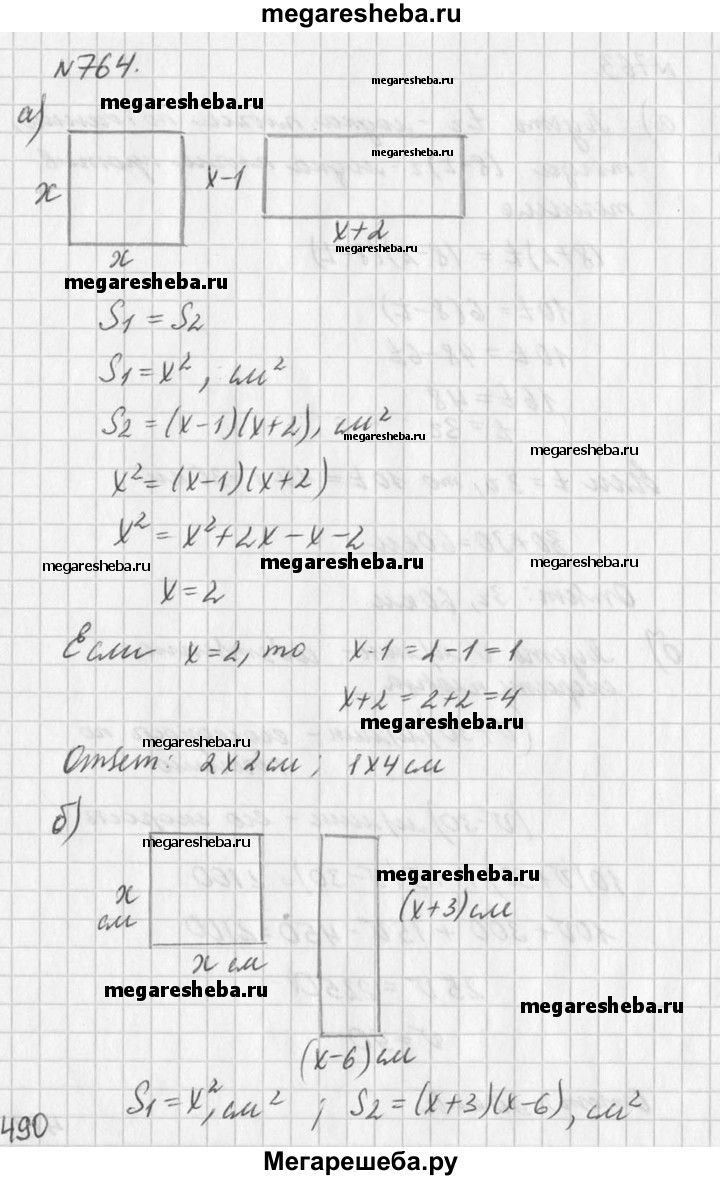 megaresheba.ru
№764.
megaresheba.ru
megaresheba.ru
а)
megaresheba.ru
x
x-1
x
x+2
megaresheba.ru
megaresheba.ru
S1 = S2
S1 = x², см²
S2 = (x-1)(x+2), см²
megaresheba.ru
megaresheba.ru
x² = (x-1)(x+2)
x² = x² + 2x - x - 2
megaresheba.ru
megaresheba.ru
megaresheba.ru
x = 2
Если x = 2, то x-1 = 2-1 = 1
x+2 = 2+2 = 4
megaresheba.ru
megaresheba.ru
Ответ: 2x2 см; 1x4 см
б)
megaresheba.ru
megaresheba.ru
x см
(x+3) см
x см
megaresheba.ru
megaresheba.ru
(x-6) см
S1 = x², см² ; S2 = (x+3)(x-6), см²
490
Мегарешеба.ру